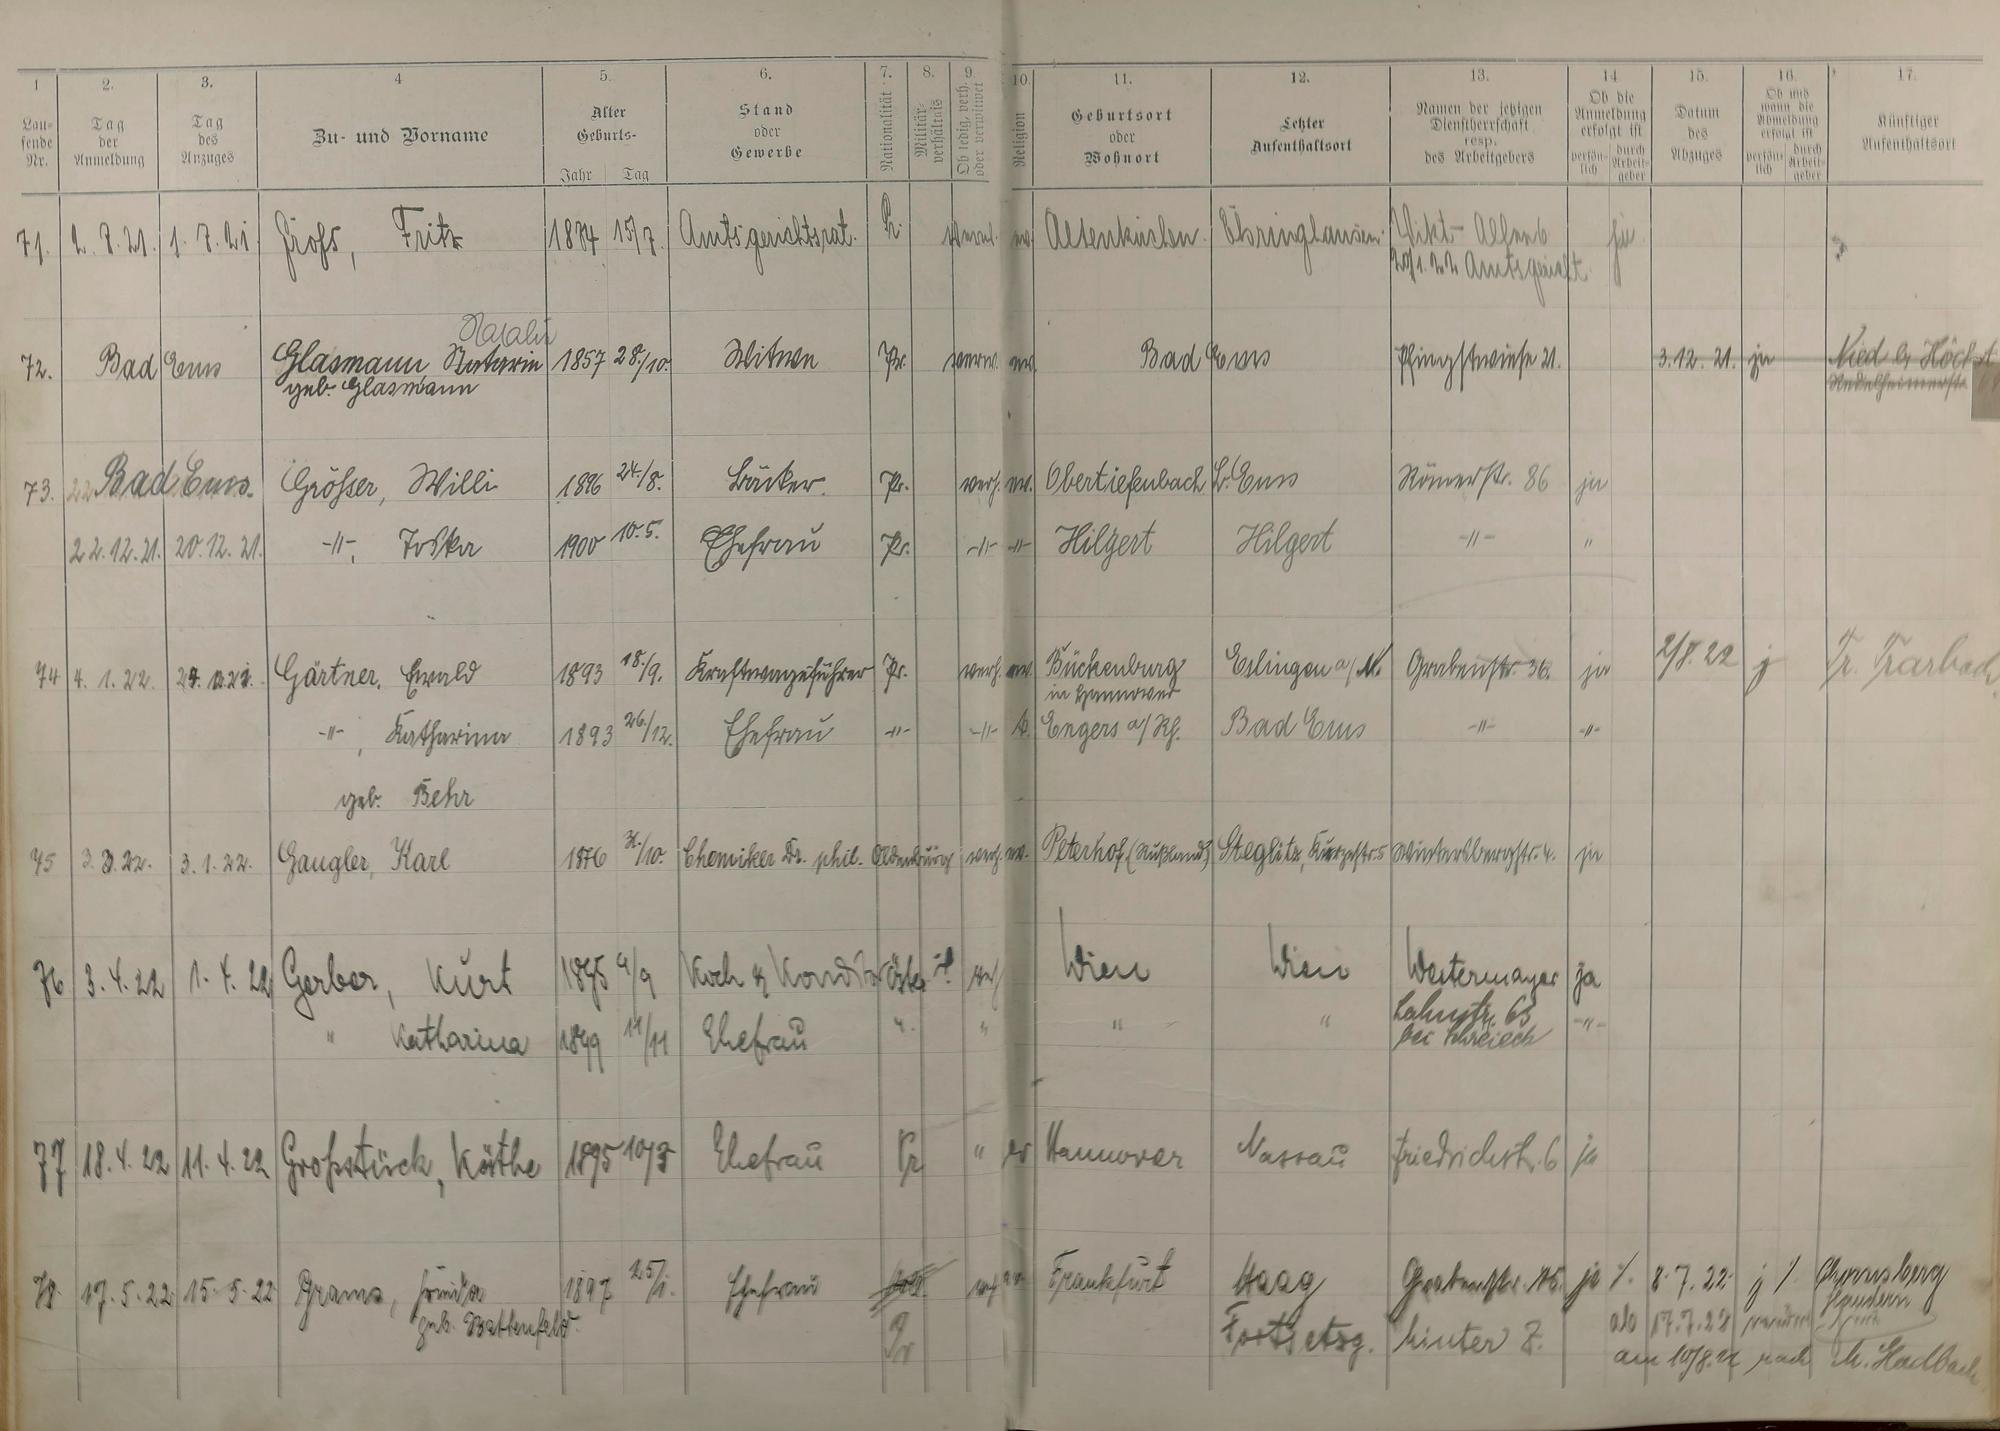 1 2. 3. 4 5. 6. 7. 8. 9. 10. 11. 12. 13. 14. 15. 16. 17.
Lau-fende Nr.
Tag der Anmeldung
Tag des Anzuges
Zu- und Vorname
Alter Geburts-
Jahr Tag
Stand oder Gewerbe
Nationalität
Militär-verhältnis
Ob ledig, verh. oder verwitwet
Religion
Geburtsort oder Wohnort
Letzter Aufenthaltsort
Namen der jetzigen Dienstherrschaft resp. des Arbeitgebers
Ob die Anmeldung erfolgt ist
persön-lich durch Arbeit-geber
Datum des Abzuges
Ob und wann die Abmeldung erfolgt ist
persön-lich durch Arbeit-geber
Künftiger Aufenthaltsort
71. 2. 8. 21. 1. 8. 21 Fritz 1874 15/7. Amtsgerichtsrat. Pr. ev. Altenkirchen.
Amtsgericht
Natalie
72. Bad Ems Glasmann 1857 28./10. Witwe Pr. verw. ev. Bad Ems Pfingstwiese 21. 3. 12. 21. ja Nied b/ Höchst
geb. Glasmann
73. Bad Ems. Größer, Willi 1896 24./8. Bäcker. Pr. verh. ev. Obertiefenbach B. Ems Römerstr. 86 ja
22. 12. 21. 20. 12. 21. -"-, Toska 1900 10. 5. Ehefrau Pr. -"- -"- Hilgert Hilgert -"- "
74 4. 1. 22. Gärtner, Ewald 1893 18./9. Kraftwagenführer Pr. verh. ev. Bückenburg Grabenstr. 36. ja 2/8. 22 j Tr. Trarbach
in Hannover
-"-, Katharina 1893 26./12. Ehefrau -"- -"- k. Engers a/Rh. Bad Ems -"- -"-
geb. Behr
75 3. 1. 22. Gaugler, Karl 1876 /10. Chemiker Dr. phil. Oldenburg verh. ev. Peterhof (Rußland) Steglitz, Wintersbergstr. 4. ja
76 3. 4. 22 1. 4. 22 Gerber, Kurt 1895 Koch & Konditor Wien Wien Westermayer ja
Lahnstr. 63
" Katharina 1899 11/11 Ehefrau " " " " -"-
77 18. 4. 22 11. 4. 22 Großstück, Käthe 1895 Ehefrau Pr " ev Hannover Nassau Friedrichstr. 6 ja
78. 17. 5. 22 15. 5. 22 1897 25/1. Ehefrau Frankfurt Haag ja 8. 7. 22 j
geb. Battenfeld.
Pr
Fortsetzg. hinter Z.
am 10/8. 22 nach